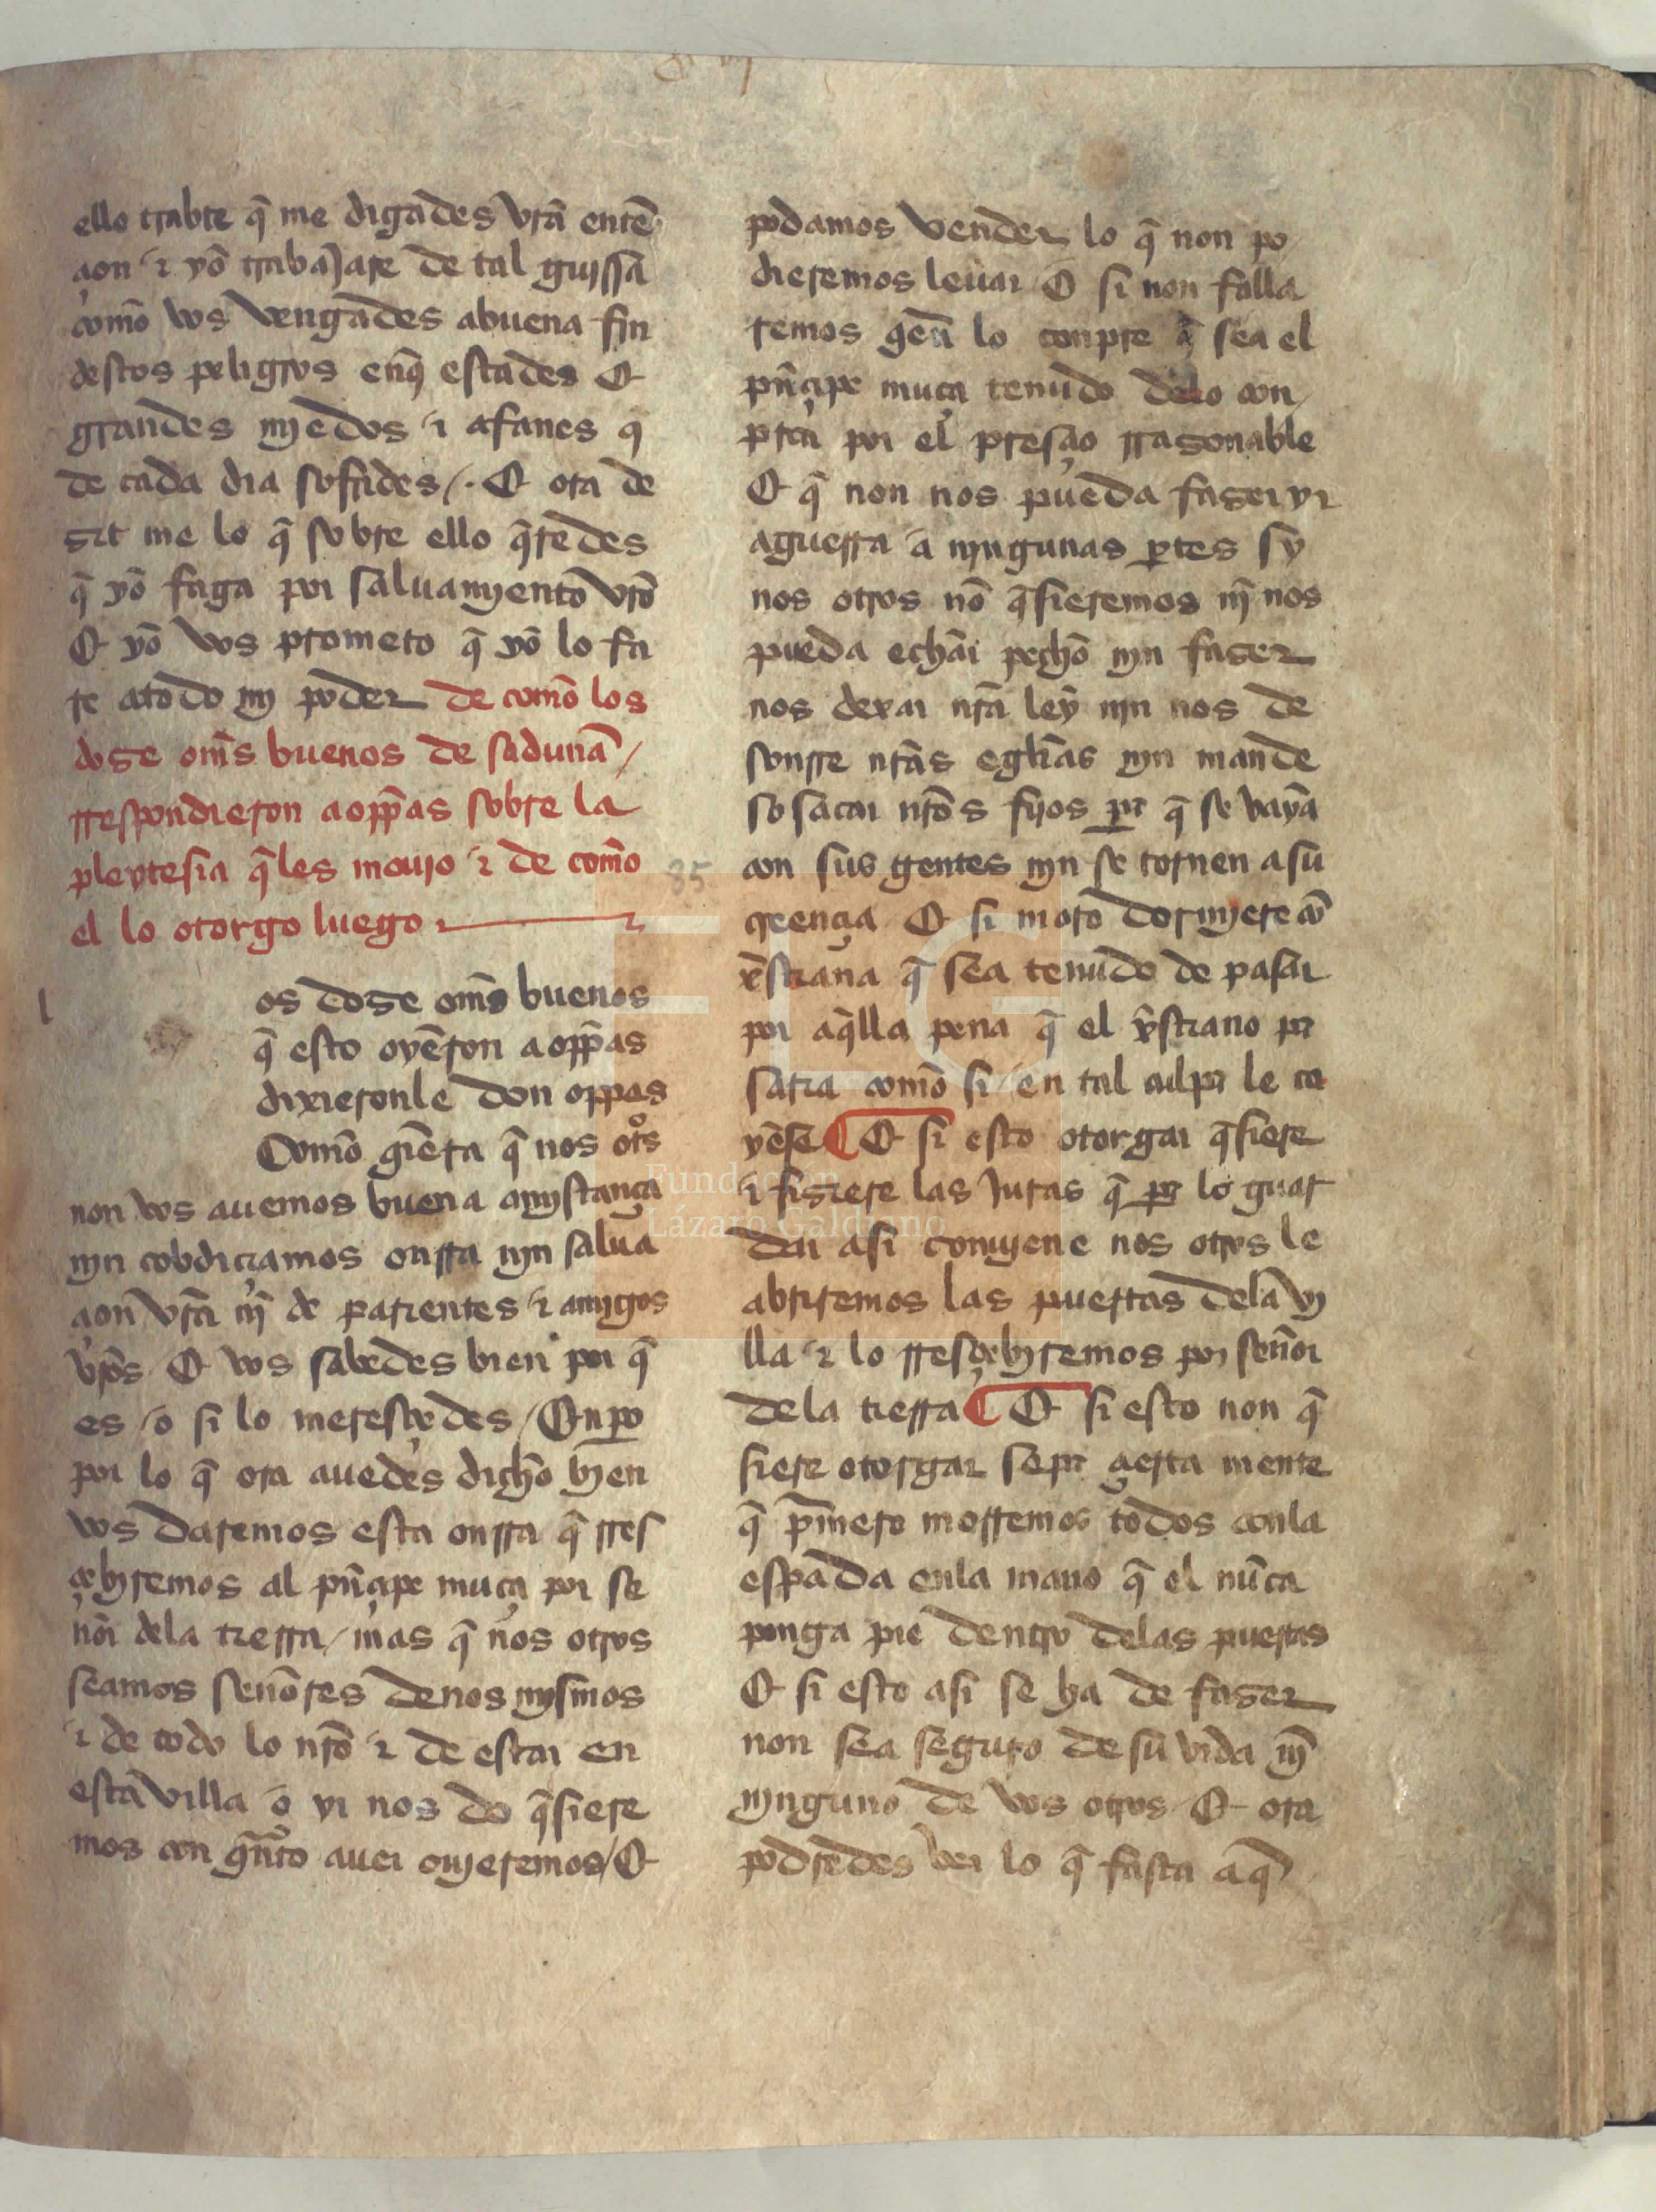 ello trabte q̃ me digades vrã entẽ
çion ⁊ yõ trabajare de tal guyssa
comõ vos vengades abuena fin
destos peligros enq̃ estades E
grandes myedos ⁊ afanes q̃
de cada dia sofrides /. E ora de
zit me lo q̃ sobre ello q̃redes
q̃ yõ faga por saluamyento vrõ
E yõ vos prometo q̃ yõ lo fa
re atodo my poder de comõ los
doze om̃s buenos de saduna /
rrespondieron a opp̃as sobre la
pleytesia q̃ les mouyo ⁊ de comõ
el lo otorgo luego
l
os doze om̃s buenos
q̃ esto oyẽron a opp̃as
dixieronle don oppas
Comõ q̃era q̃ nos otõs
non vos auemos buena amystança
nyn cobdiçiamos onrra nyn salua
çion vrã nj̃ de parientes ⁊ amygos
vr̃os E vos sabedes bien por q̃
es / o si lo meresçedes / Enpo
por lo q̃ ora auedes dichõ byen
vos daremos esta onrra q̃ rres
çebyremos al prĩçipe muça por se
ñor dela tierra / mas q̃ nos otros
seamos señores denos mysmos
⁊ de todo lo nrõ ⁊ de estar en
esta villa o yr nos do q̃siere
mos con q̃nto auer ouyeremos / E
podamos vender lo q̃ non po
dieremos leuar O si non falla
remos q̃en lo conpre q̃ sea el
prĩçipe muça tenudo delo con
prar por el presçio rrazonable
E q̃ non nos pueda fazer yr
aguerra a nyngunas ptes sy
nos otros nõ q̃sieremos nj̃ nos
pueda echãr pechõ nyn fazer
nos dexar nrã ley nyn nos de
sonrre nrãs egliãs nyn mande
so sacar nrõs fijos pa q̃ se vayã
con sus gentes nyn se tornen a su
creençia E si moro dormyere cõ
xr̃istiana q̃ sea tenudo de pasar
por aq̃lla pena q̃ el xr̃istiano pa
saria comõ si / en tal culpa le ca
yẽse E si esto otorgar q̃siere
⁊ fiziere las juras q̃ pa lo guar
dar asi conuyene nos otros le
abriremos las puertas dela vj
lla ⁊ lo rresçebyremos por señor
dela tierra E si esto non q̃
siere otorgar sepa çierta mente
q̃ pm̃ero morremos todos conla
espada enla mano q̃ el nũca
ponga pie dentro delas puertas
E si esto asi se ha de fazer
non sea seguro de su vida nj̃
nynguno de vos otros E ora
podredes ver lo q̃ fasta aq̃
85
FLG
Fundación
Lázaro Galdiano